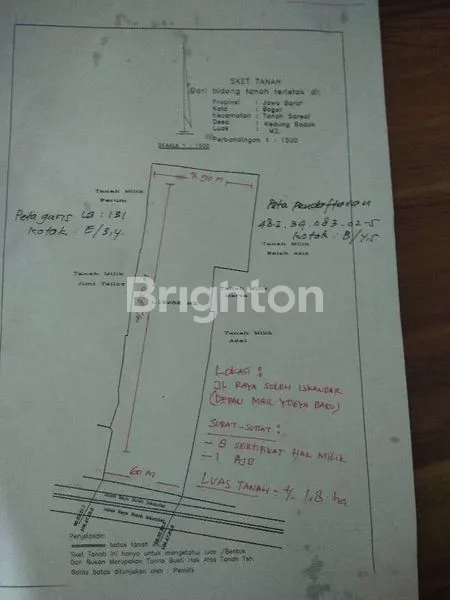 SKET TANAH
Dari bidang tanah terletak di:
Propinsi : Jawa Barat
Kota : Bogor
Kecamatan : Tanah Sareal
Desa : Kedung Badak
Luas : M2.
Perbandingan 1 : 1500
SKALA 1 : 1500
± 90 M
Tanah Milik
Perum
Peta garis LB : 131
Kotak : E/3,4.
Peta Pendaftaran
48.2.34.083.02-5
Kotak : B/4,5
Tanah Milik
Tanah Milik
Tanah Milik
Tanah Milik
Brighton
LOKASI :
JL RAYA SOLEH ISKANDAR
(DEPAN MALL YOGYA BARU)
SURAT-SURAT :
- 8 SERTIFIKAT HAK MILIK
- 1 AJB
LUAS TANAH = +/- 1,8 ha
60 M
Jalan Raya Soleh Iskandar
Jalan Raya Soleh Iskandar
Penjelasan:
batas tanah
Sket Tanah ini hanya untuk mengetahui Luas /Bentuk
Dan Bukan Merupakan Tanda Bukti Hak Atas Tanah Tsb.
Batas batas ditunjukan oleh : Pemilik